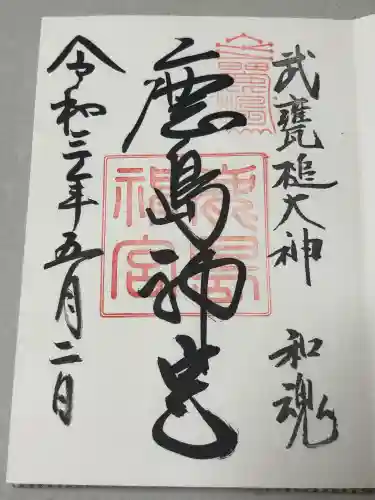 武甕槌大神 和魂
鹿島神宮
鹿島神宮
令和三年五月二日